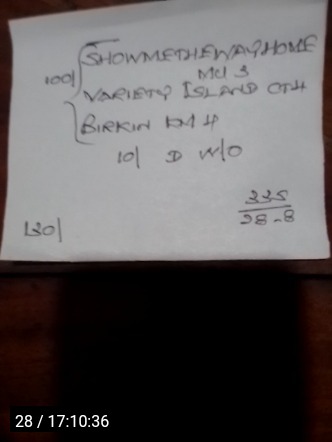 100/ SHOWMETHEWAYHOME
MU 3
VARIETY ISLAND CT4
BIRKIN KM 4
10/ D W/O
335
130/ 28-8
28 / 17:10:36